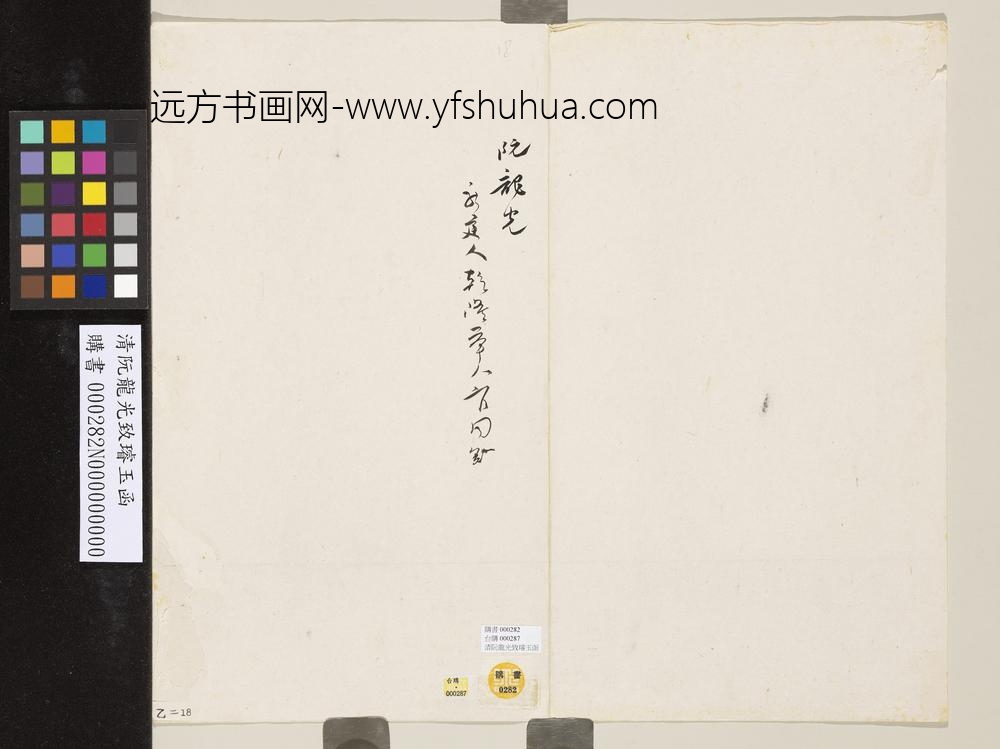 18
远方书画网-www.yfshuhua.com
阮龍光
人乾隆舉人官同知
清阮龍光致璿玉函
購書 000282N000000000
購書 000282
台購 000287
清阮龍光致璿玉函
台購
000287
購書
0282
乙=18